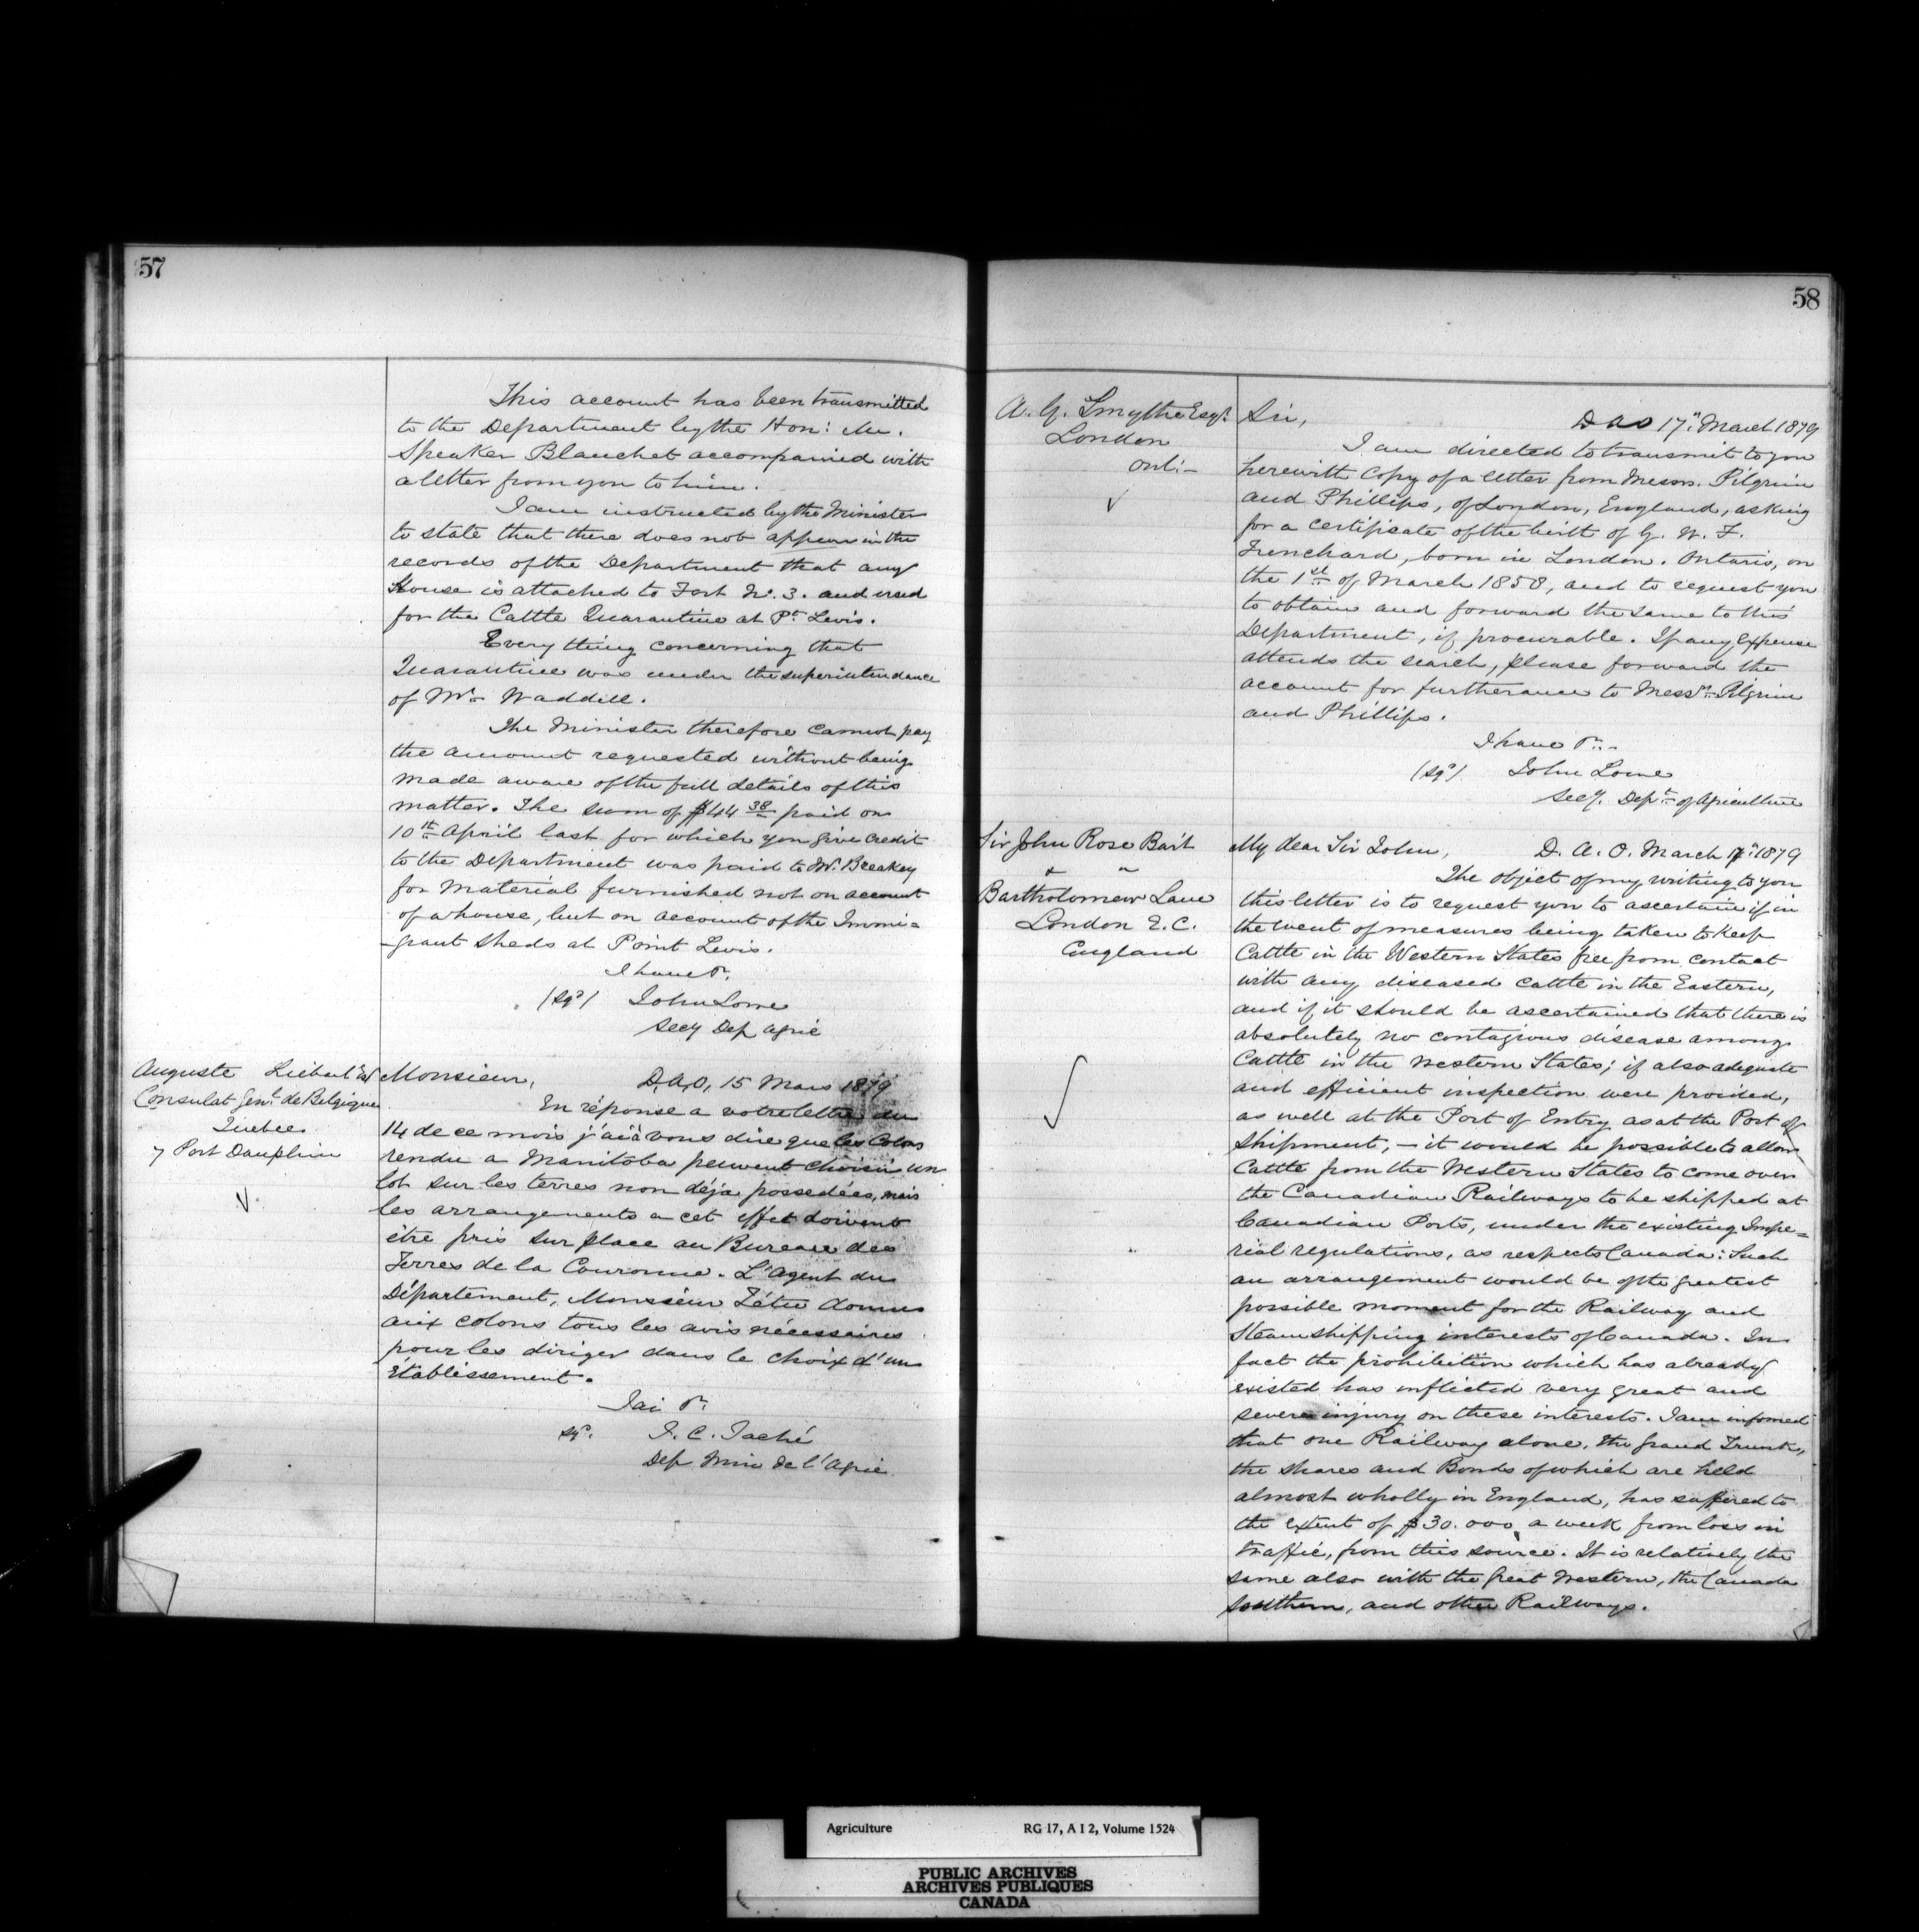 57
This account has been transmitted
to the Department by the Hon: Mr.
Speaker Blanchet accompanied with
a letter from you to him.
I am instructed by the Minister
to state that there does not appear in the
records of the Department that any
House is attached to Fort No. 3. and used
for the Cattle Quarantine at Pt. Levis.
Every thing concerning that
Quarantine was under the superintendance
of Mr. Waddell.
The Minister therefore cannot pay
the amount requested without being
made aware of the full details of this
matter. The sum of $44 38 paid on
10th April last for which you give credit
to the Department was paid to Mr. Breakey
for material furnished not on account
of a house, but on account of the Immi=
-grant Sheds at Point Levis.
I have &c.
(sgd) John Lowe
Secy Dep Agric
Auguste Liebert Esq
Consulat Genl. de Belgique
Quebec
7 Port Dauphin
Monsieur, D.A.O, 15 Mars 1879
En réponse a votre lettre du
14 de ce mois j'ai à vous dire que les Colons
rendu a Manitoba peuvent choisir un
lot sur les terres non déja possedées, mais
les arrangements a cet effet doivent
être pris sur place au Bureau des
Terres de la Couronne. L'Agent du
Département, Monsieur Tétu donnera
aux colons tous les avis nécessaires
pour les diriger dans le choix d'un
établissement.
J'ai &c.
sgd. J. C. Taché
Dep Min de l'Agric
58
A. G. Smythe Esqr.
London
Ont:-
Sir, D A O 17th March 1879
I am directed to transmit to you
herewith Copy of a letter from Messrs. Pilgrim
and Phillips, of London, England, asking
for a certificate of the birth of G. W. F.
Trenchard, born in London. Ontario, on
the 1st of March 1858, and to request you
to obtain and forward the same to this
Department, if procurable. If any expense
attends the search, please forward the
account for furtherance to Messrs. Pilgrim
and Phillips.
I have &c.
(sgd) John Lowe
Secy. Dept. of Agriculture
Sir John Rose Bart
Bartholomew Lane
London E.C.
England
My dear Sir John, D. A. O. March 17th 1879
The object of my writing to you
this letter is to request you to ascertain if in
the event of measures being taken to keep
Cattle in the Western States free from contact
with any diseased cattle in the Eastern,
and if it should be ascertained that there is
absolutely no contagious disease among
Cattle in the Western States; if also adequate
and efficient inspection were provided,
as well at the Port of Entry as at the Port of
Shipment, - it would be possible to allow
Cattle from the Western States to come over
the Canadian Railways to be shipped at
Canadian Ports, under the existing Impe=
rial regulations, as respects Canada: Such
an arrangement would be of the greatest
possible moment for the Railway and
Steamshipping interests of Canada. In
fact the prohibition which has already
existed has inflicted very great and
severe injury on these interests. I am informed
that one Railway alone, the Grand Trunk,
the shares and Bonds of which are held
almost wholly in England, has suffered to
the extent of $30.000 a week from loss in
traffic, from this source. It is relatively the
same also with the Great Western, the Canada
Southern, and other Railways.
Agriculture RG 17, A I 2, Volume 1524
PUBLIC ARCHIVES
ARCHIVES PUBLIQUES
CANADA